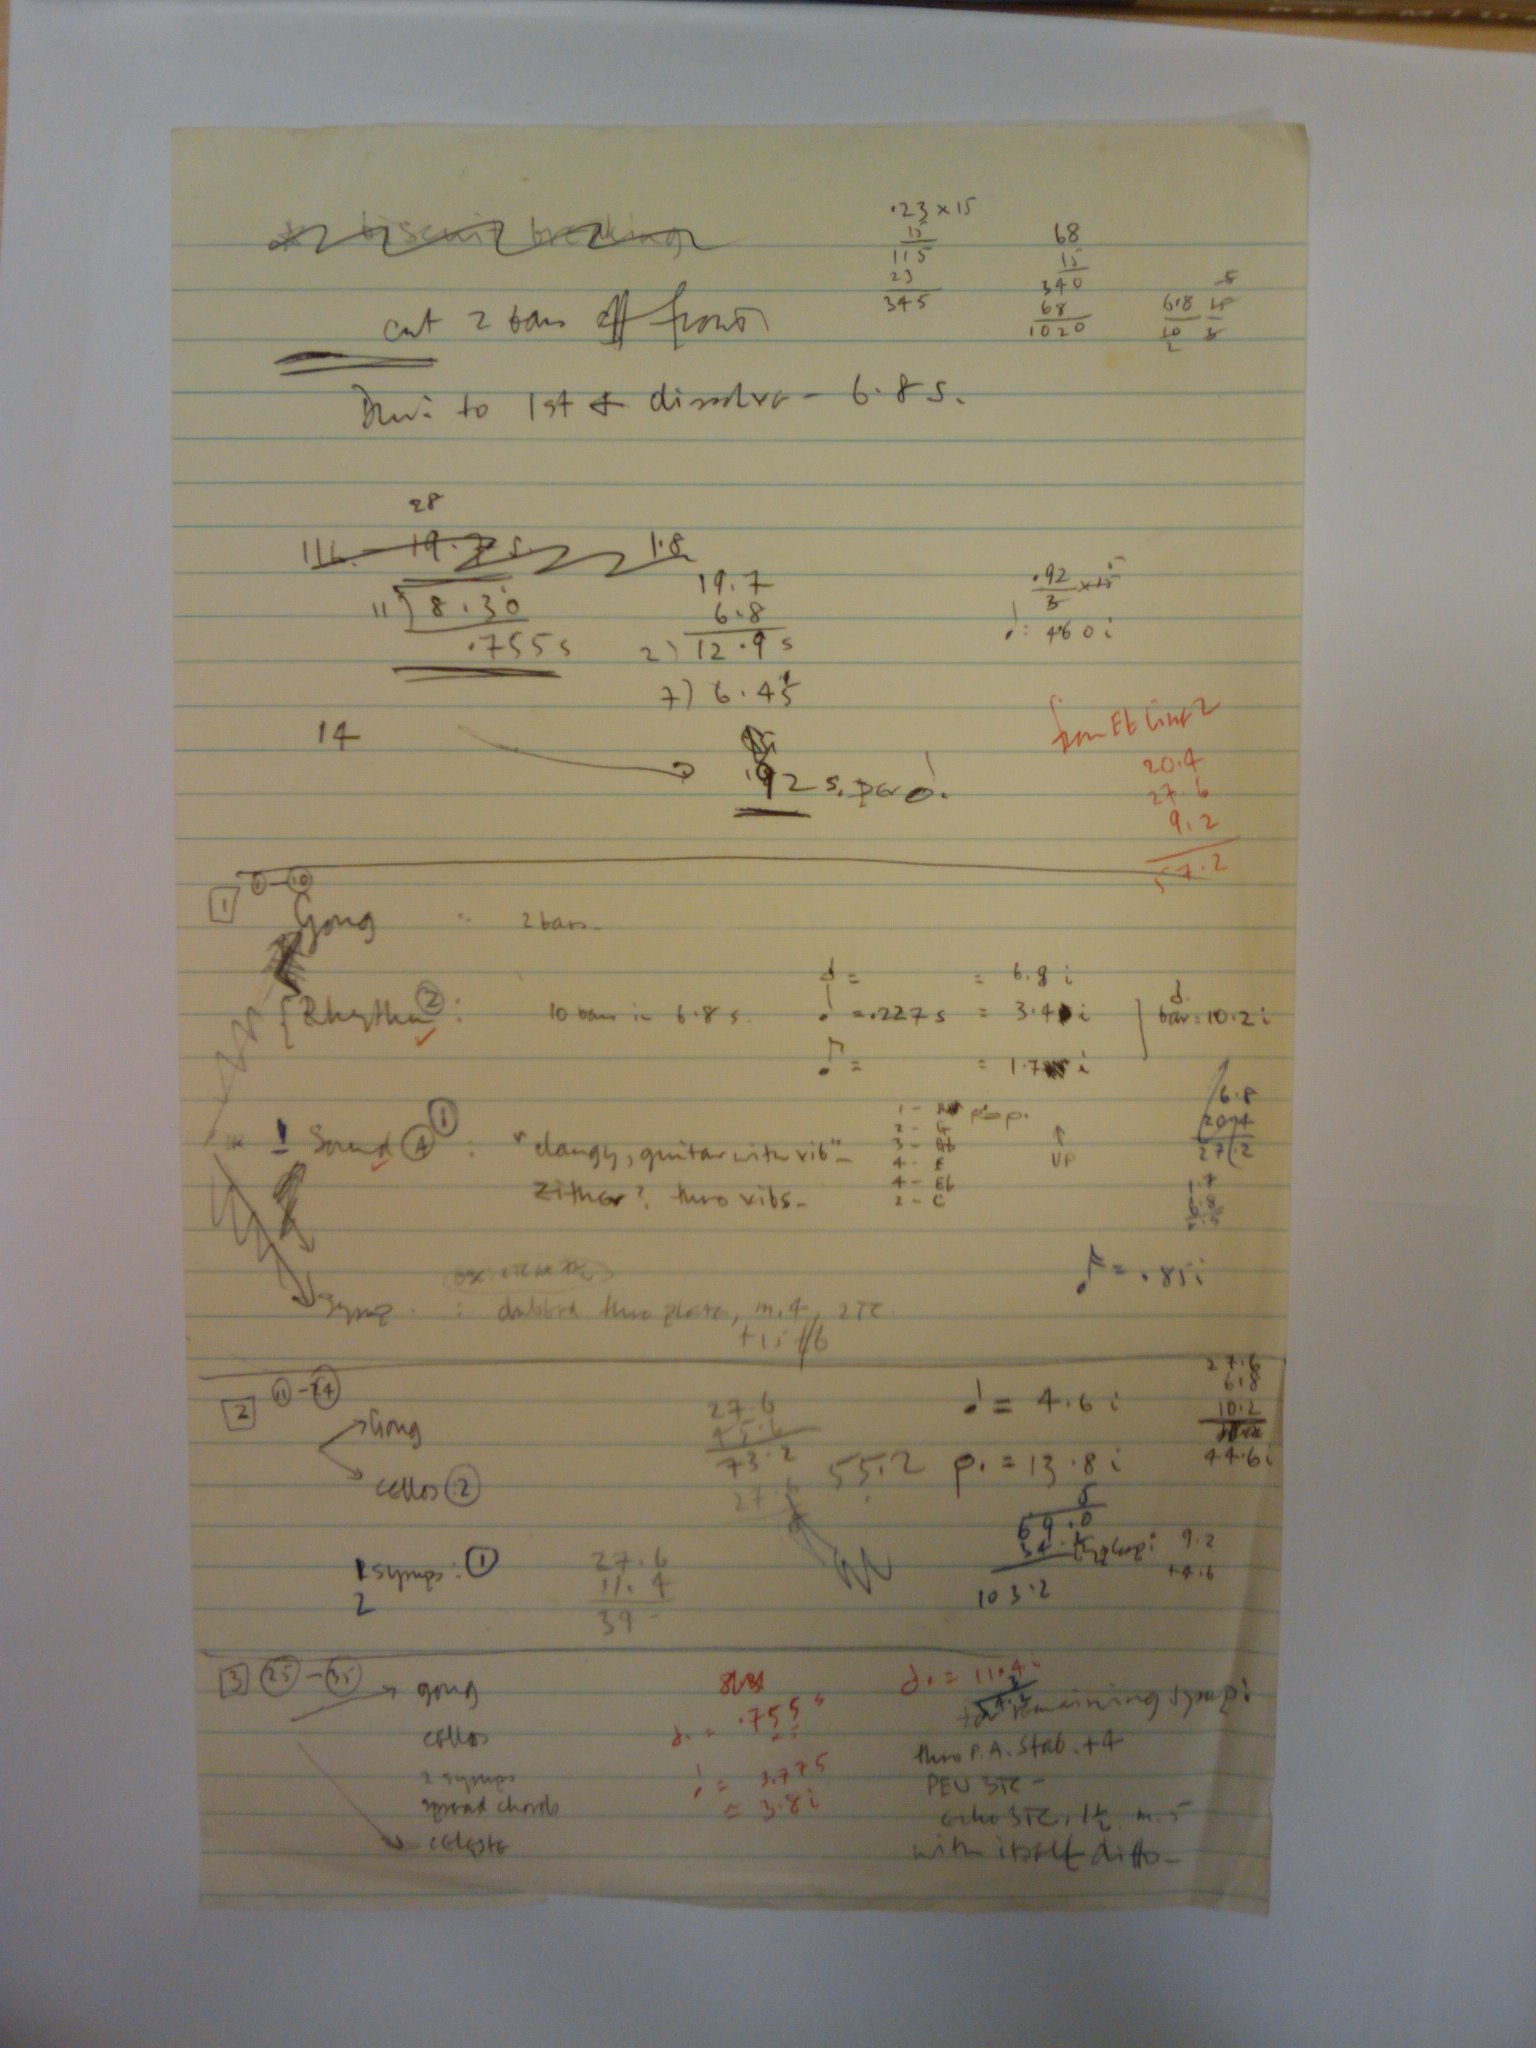 biscuit breaking
.23 x 15
15
115
23
345
68
15
340
68
1020
5
6.8 15
10 3
2
cut 2 bars off front
Dur: to 1st & dissolve - 6.8 s.
28
116. 19.7 s. 1.8
11) 8.30
.755 s
19.7
6.8
2) 12.9 s
7) 6.45
14
.92 s. per
.92 x 15
3
= 4.60 i
from Eb line 2
20.4
27.6
9.2
57.2
1 1 - 10
Gong : 2 bars.
= = 6.8 i
Rhythm 2 : 10 bars in 6.8 s. = .227 s = 3.4 i bar = 10.2 i
= = 1.7 i
6.8
20.4
27.2
1.7
6.8
8.5
* Sound 4 1 : "clangy, guitar with vib" -
Zither? thro vibs -
1 -
2 - G
3 - Bb
4 - F
4 - Eb
2 - C
UP
= .85 i
Symp. : dubbed thro plate, m.4, 2TC.
+15
2 11 - 24
Gong
Cellos 2
27.6
45.6
73.2
27.6
= 4.6 i
55.2 = 13.8 i
27.6
6.8
10.2
44.6 i
5
69.0
34.
103.2
symp: 9.2
+4.6
symps: 1
2
27.6
11.4
39 -
3 25 - 35
gong
cellos
2 symps
spread chords
celeste
= .755 s
= 3.775
= 3.8 i
= 11.4
for remaining symp:
thro P.A. Stab. +4
PEU 3TC -
echo 3TC, 1½ m.5
with itself ditto -